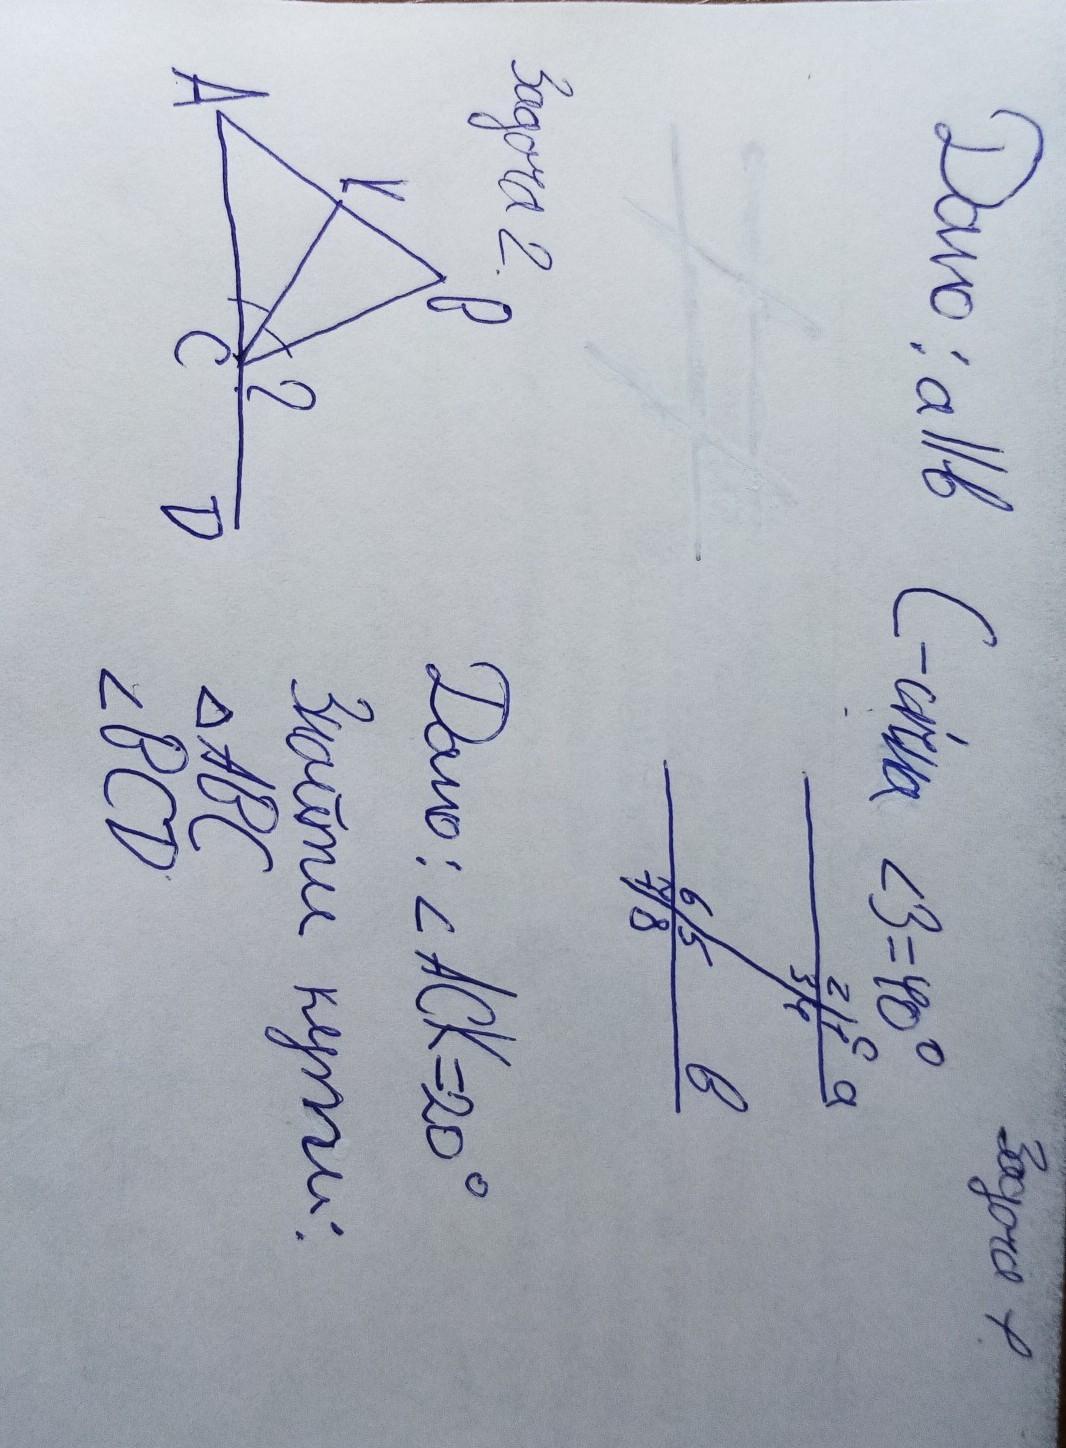 Задача 1
Дано: a||b C-січна ∠3=40°
2 1 c
3 4 a
6 5 b
7 8
Задача 2.
Дано: ∠ACK=20°
Знайти кути:
△ABC
∠BCD
B
K
A C ? D